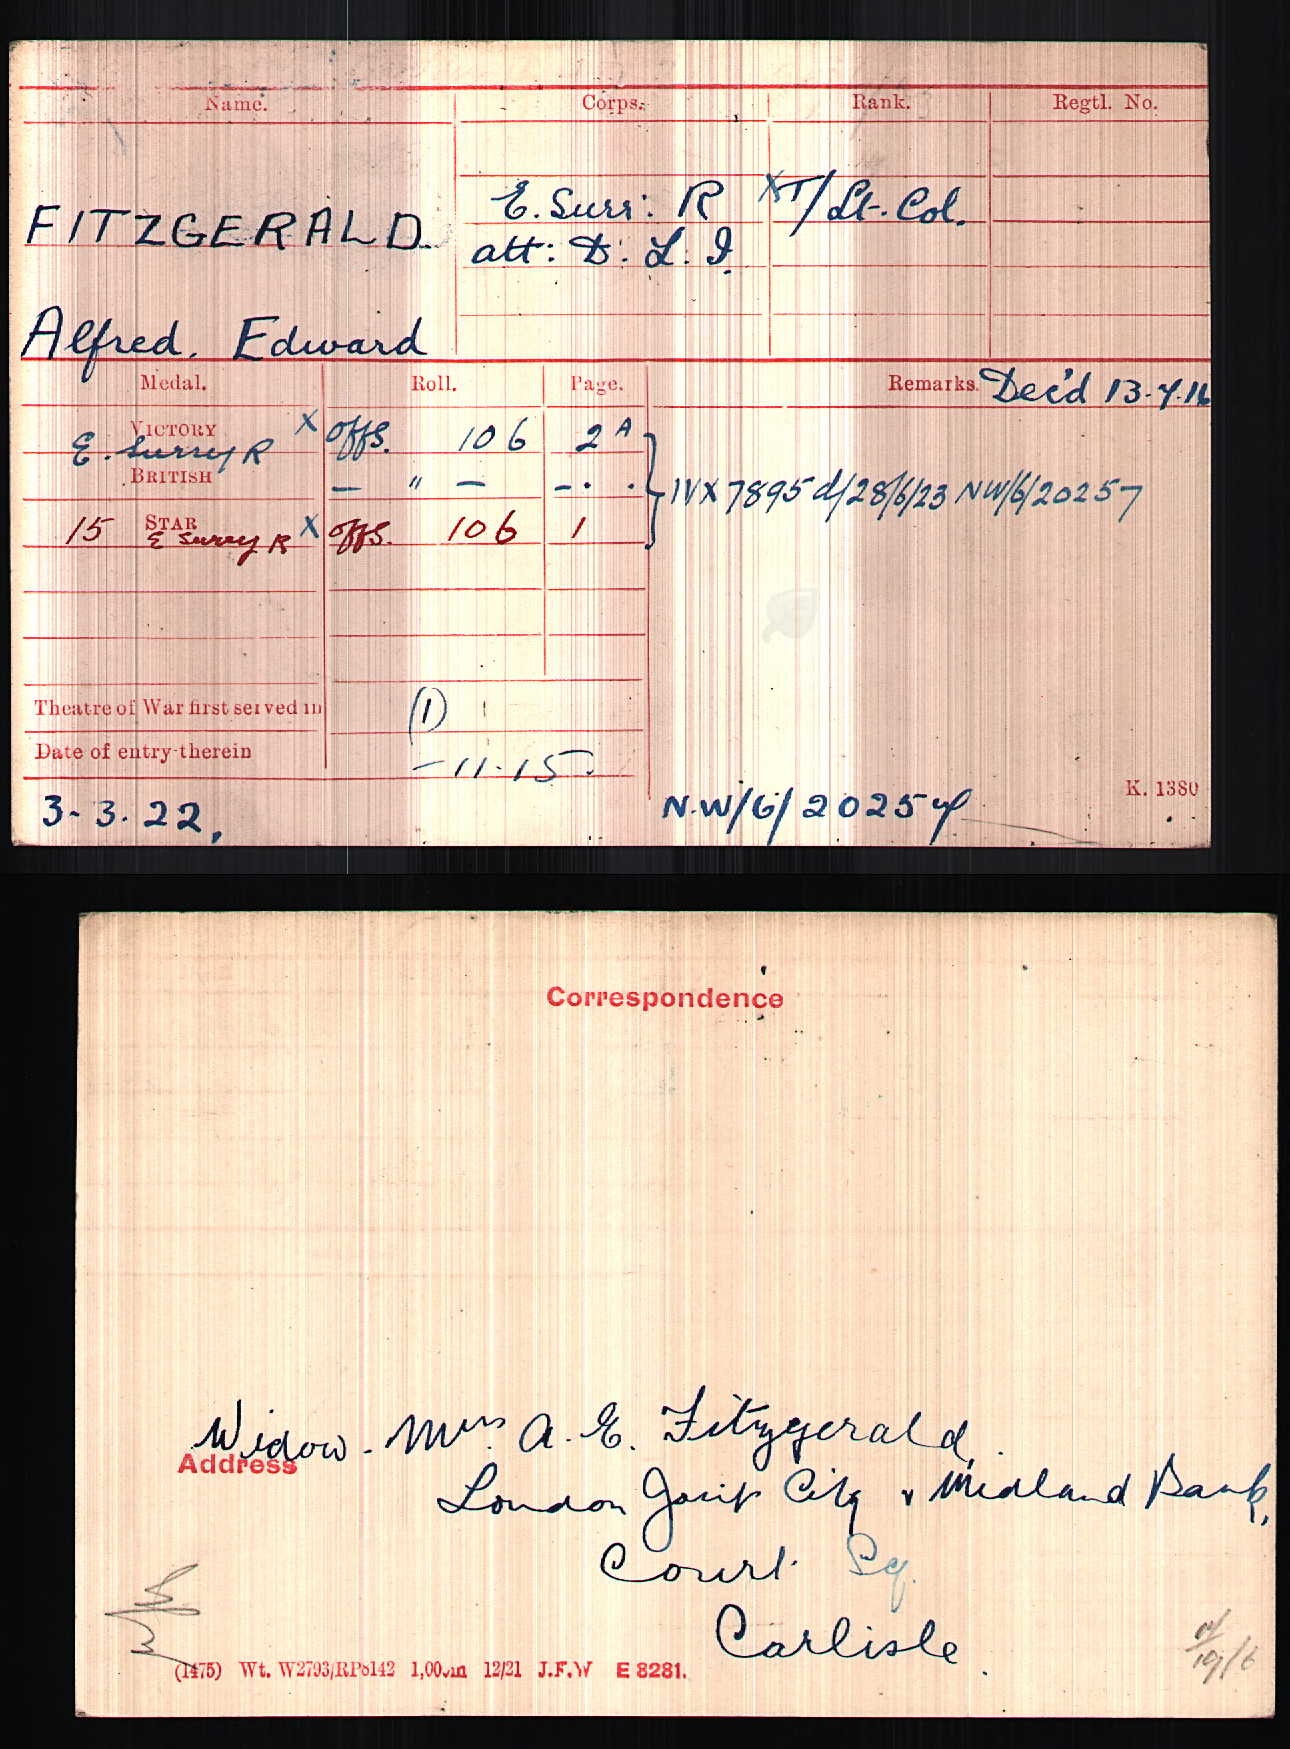 Name. Corps. Rank. Regtl. No.
E. Surr: R XT/Lt-Col.
FITZGERALD
att: D. L. I.
Alfred. Edward
Medal. Roll. Page. Remarks. Dec'd 13.7.16
VICTORY X Offs. 106 2A
E. Surrey R
BRITISH — " — -..
IVX 7895 d/28/6/23 NW/6/20257
15 STAR X Offs. 106 1
E Surrey R
Theatre of War first served in (1)
Date of entry therein - 11.15.
K. 1380
3-3.22. N.W/6/20257
Correspondence
Widow - Mrs A. E. Fitzgerald.
Address
London Joint City & Midland Bank,
Court Sq.
Carlisle.
(1475) Wt. W2793/RP8142 12/21 J.F.W E 8281.